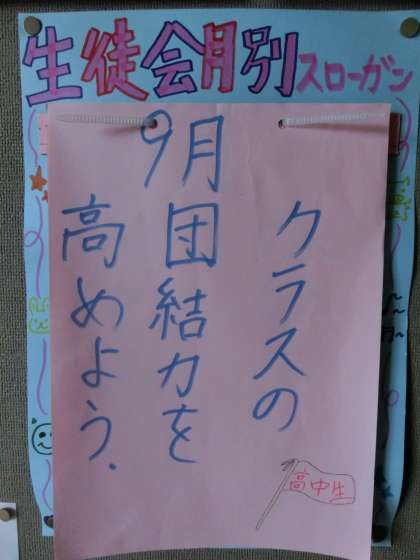 生徒会月別スローガン
9月
クラスの
団結力を
高めよう.
高中生